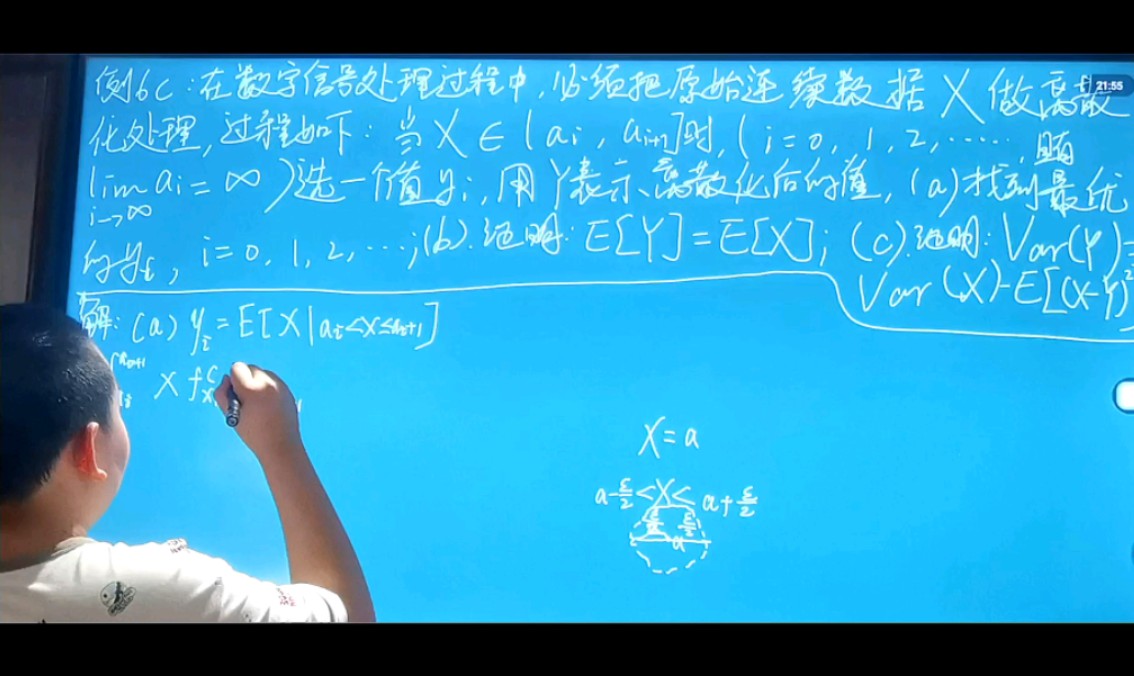 例6c:在数字信号处理过程中,必须把原始连续数据X做离散
21:55
化处理,过程如下:当X∈(ai, ai+1]时,(i=0,1,2,……,且
lim ai=∞)选一个值yi,用Y表示离散化后的值,(a)找到最优
i→∞
的yi, i=0,1,2,…;(b).证明:E[Y]=E[X];(c).证明:Var(Y)=
Var(X)-E[(X-Y)²]
解:(a) yi=E[X|ai<X≤ai+1]
x f
X=a
a-ε/2<X<a+ε/2
ε/2 ε/2
a